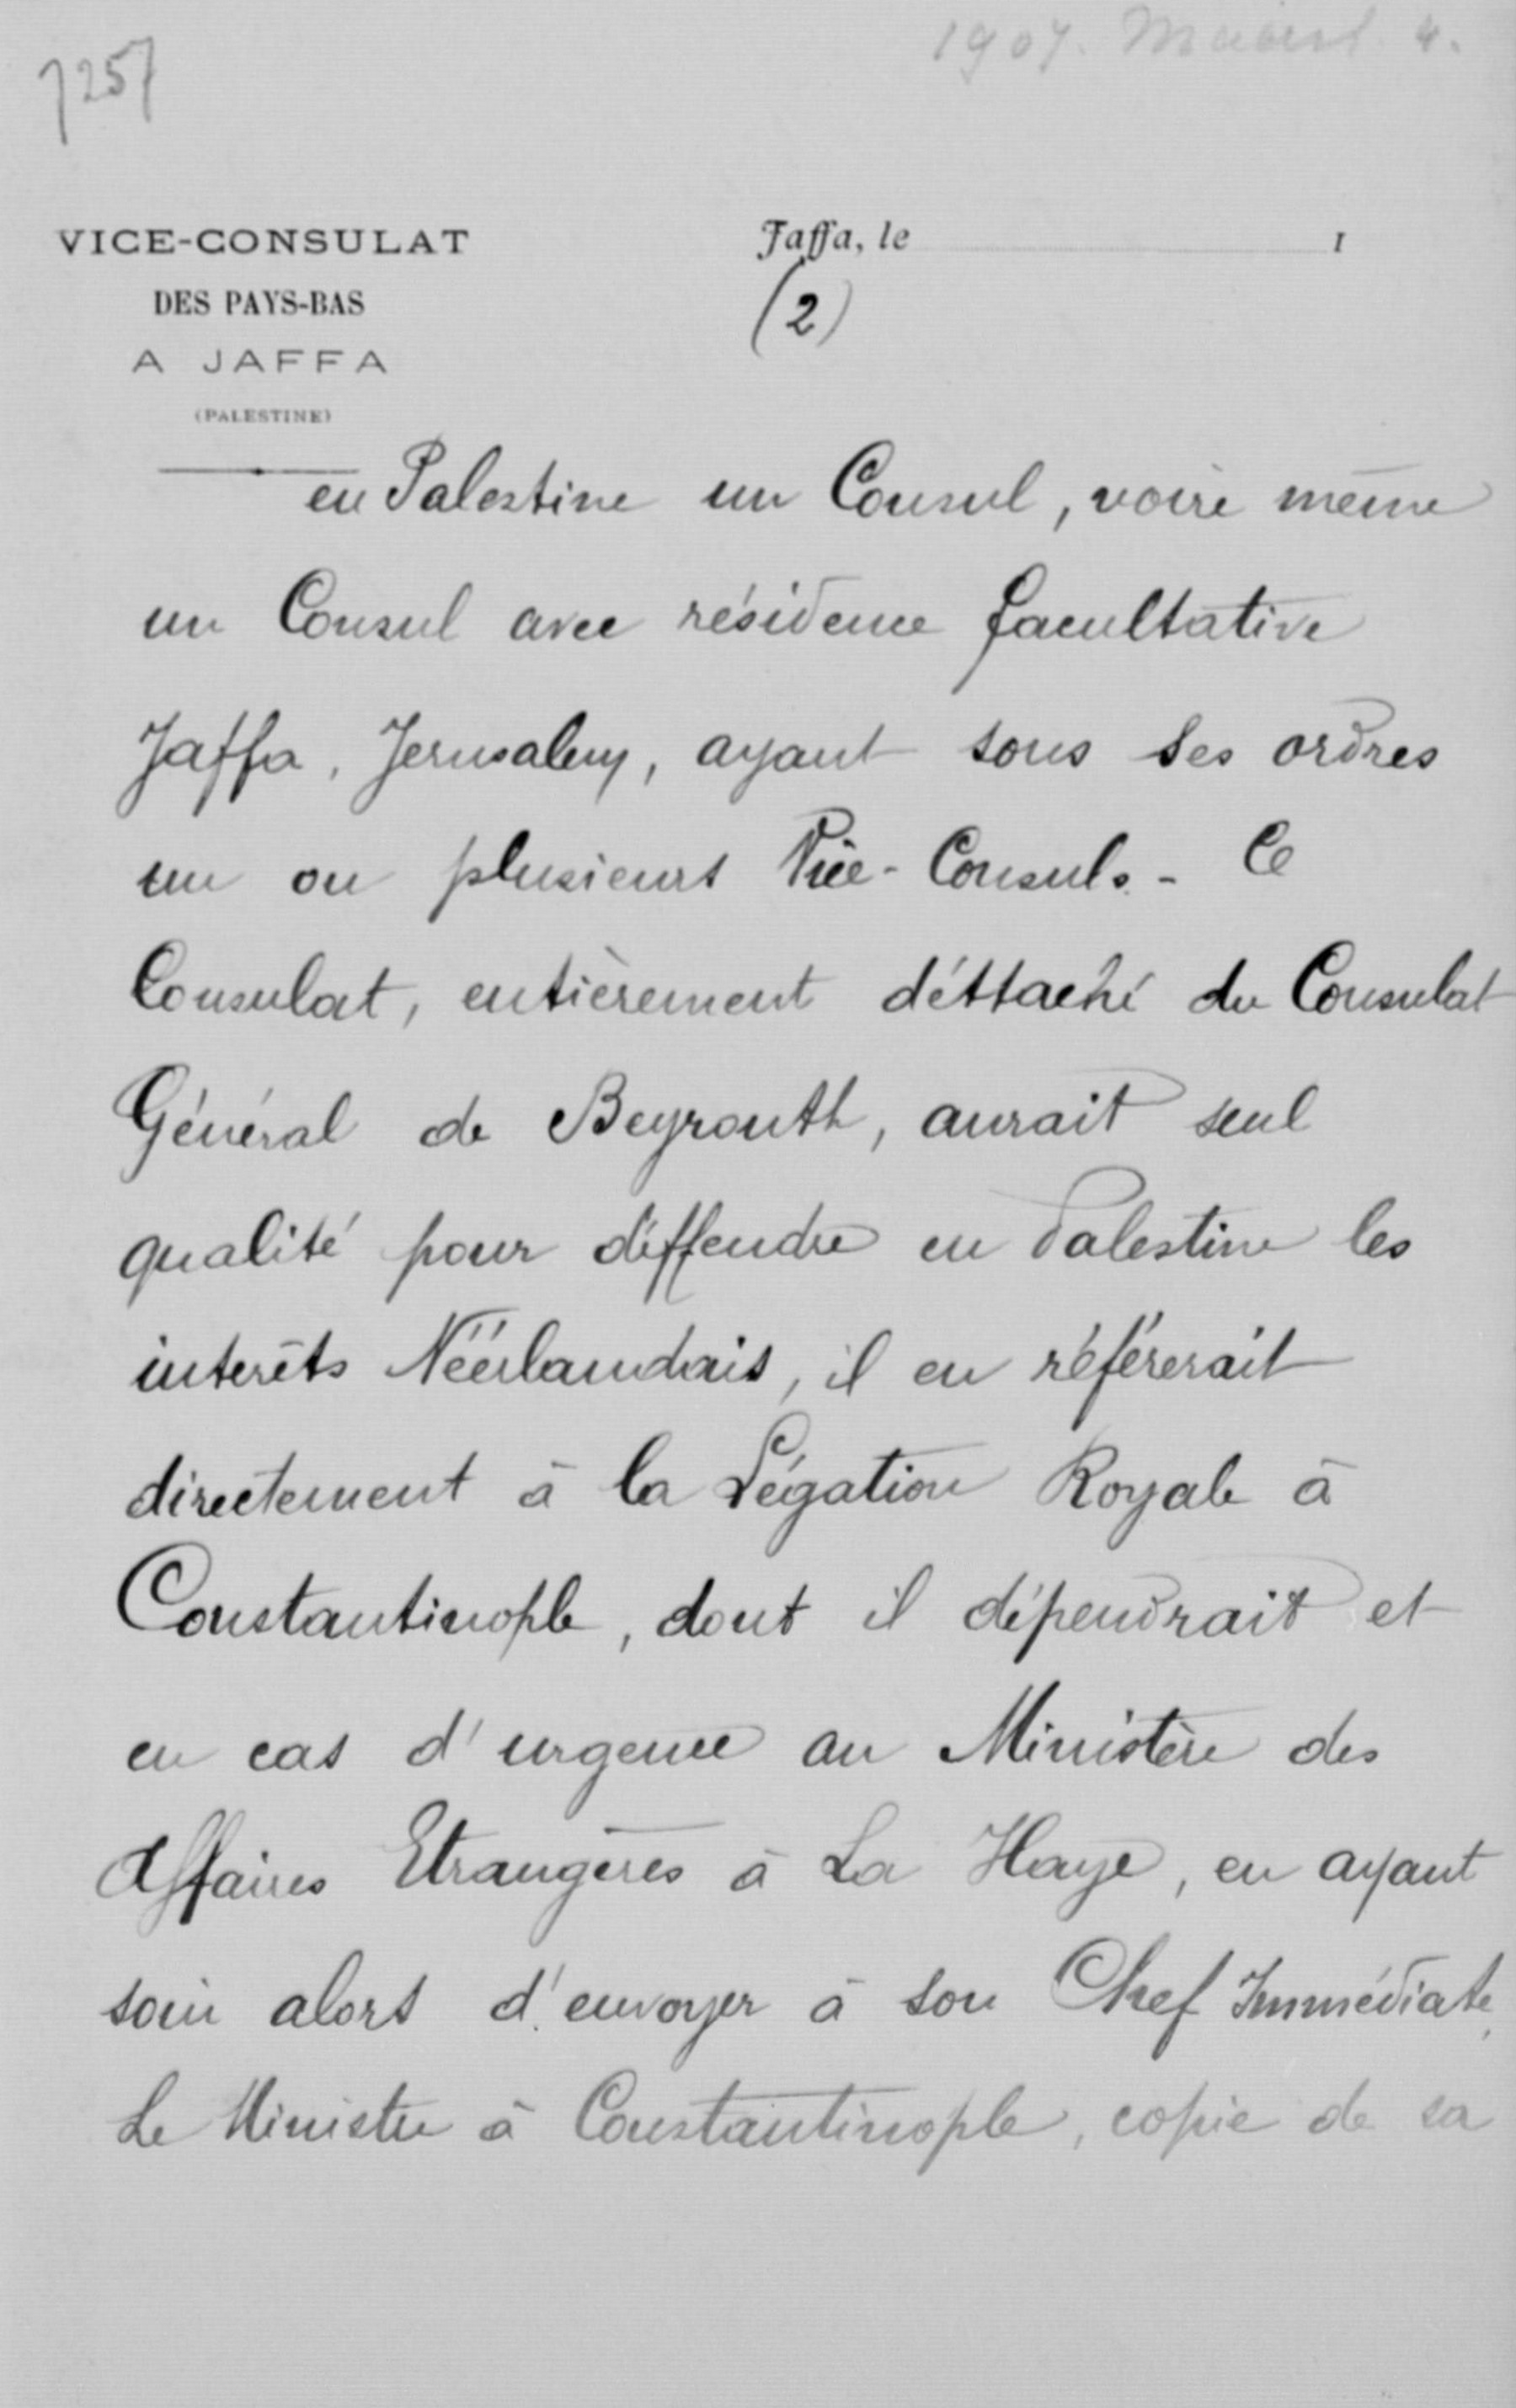 1907. Maart 4.
7257
VICE-CONSULAT
DES PAYS-BAS
A JAFFA
(PALESTINE)
Jaffa, le 1
(2)
en Palestine un Consul, voire même
un Consul avec résidence facultative
Jaffa, Jerusalem, ayant sous ses ordres
un ou plusieurs Vice-Consuls. - Ce
Consulat, entièrement déttaché du Consulat
Général de Beyrouth, aurait seul
qualité pour déffendre en Palestine les
interêts Néérlandais, il en référerait
directement à la Légation Royale à
Constantinople, dont il dépendrait et
en cas d'urgence au Ministère des
Affaires Etrangères à La Haye, en ayant
soin alors d'envoyer à son Chef Immédiate,
Le Ministre à Constantinople, copie de sa